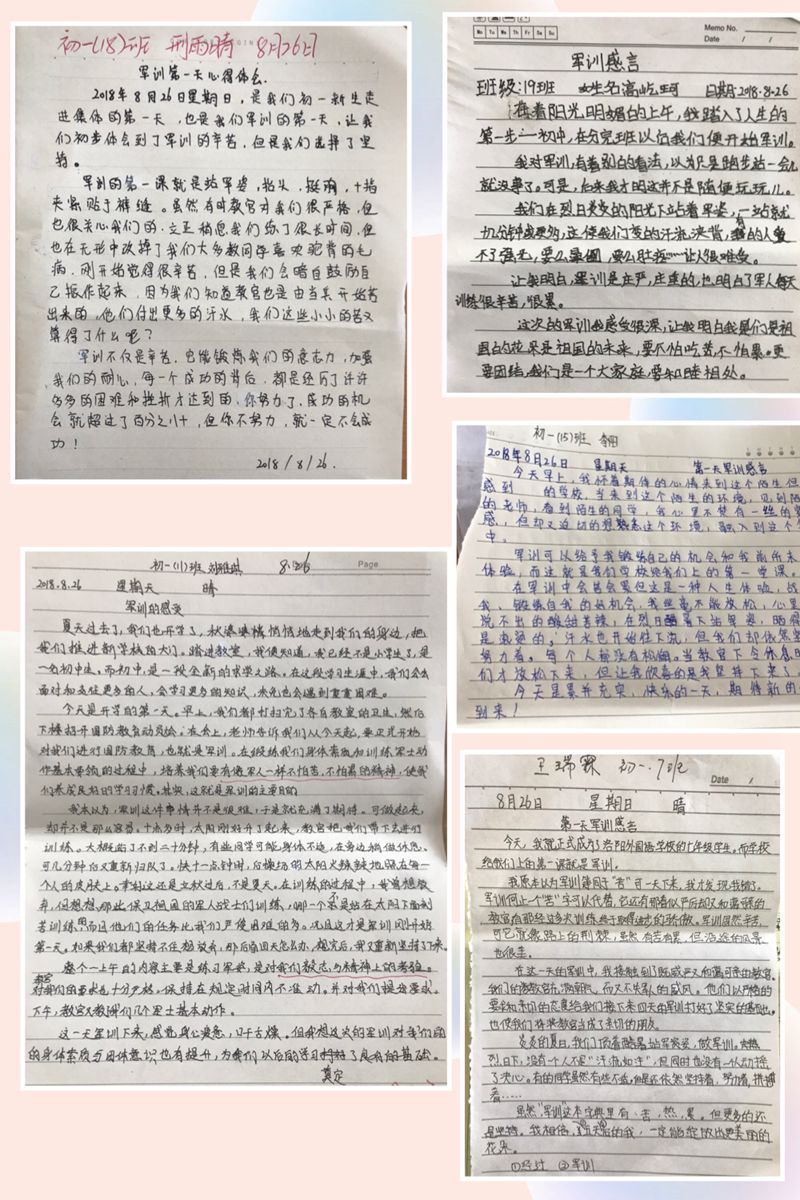 初一(18)班 邢雨晴 8月26日
军训第一天心得体会
2018年8月26日星期日，是我们初一新生走
进集体的第一天，也是我们军训的第一天，让我
们初步体会到了军训的辛苦，但是我们选择了坚
持。
军训的第一课就是站军姿，抬头，挺胸，十指
夹紧贴于裤缝。虽然有时教官对我们很严格，但
也很关心我们的。立正稍息我们练了很长时间，但
也在无形中改掉了我们大多数同学喜欢驼背的毛
病。刚开始觉得很辛苦，但是我们会暗自鼓励自
己振作起来，因为我们知道教官也是由当兵开始苦
出来的，他们付出更多的汗水，我们这些小小的苦又
算得了什么呢？
军训不仅是辛苦，它能锻炼我们的意志力，加强
我们的耐心，每一个成功的背后，都是经历了许许
多多的困难和挫折才达到的，你努力了，成功的机
会就超过了百分之八十，但你不努力，就一定不会成
功！
2018/8/26.
Memo No.
Mo Tu We Th Fr Sa Su
Date / /
军训感言
班级：19班 姓名高屹珂 日期：2018.8.26
在着阳光明媚的上午，我踏入了人生的
第一步——初中，在分完班以后我们便开始军训。
我对军训，有着别的看法，以为只是跑步站一会儿
就没事了。可是，后来我才明这并不是随便玩玩儿。
我们在烈日炎炎的阳光下站着军姿，一站就
几分钟或更多，这使我们变的汗流浃背，的人受
不了强光，要么晕倒，要么肚疼……让人很难受。
让我明白，军训是庄严，庄重的，也明白了军人每天
训练很辛苦，很累。
这次的军训我感受很深，让我明白我们是祖
国的花朵是祖国的未来，要不怕吃苦，不怕累。更
要团结，我们是一个大家庭，要和睦相处。
初一(15)班
2018年8月26日 星期天 第一天军训感言
今天早上，我怀着期待的心情来到这个陌生但
感到 的学校，当来到这个陌生的环境，见到陌
的老师，看到陌生的同学，我心里不禁有一丝的
感，但却又迫切的想熟悉这个环境，融入到这个
中。
军训可以给予我锻炼自己的机会和我前所未
体验，而这就是我们学校给我们上的第一学课。
在军训中会苦会累但这是一种人生体验，战
我、锻炼自我的好机会，我丝毫不敢放松，心里
说不出的酸甜苦辣，在烈日下站军姿，晒得
是滚烫的；汗水也开始往下流，但我们却依然坚
努力着。每个人都没有松懈。当教官下令休息时
们才放松下来，但让我欣喜的是我坚持下来了。
今天是累并充实，快乐的一天，期待新的
到来！
初一(11)班 刘雅琪 8.26 Page
2018.8.26 星期天 晴
军训的感受
夏天过去了，我们也开学了，秋季悄悄地走到我们的身边，把
我们推进新学校的大门。踏进教室，我便知道，我已经不是小学生了，是
一名初中生。而初中，是一段全新的求学之路。在这段学习生涯中，我们会去
面对和去征更多的人，会学习更多的知识，未免也会遇到重重困难。
今天是开学的第一天。早上，我们都打扫完了各自教室的卫生，然后
下楼招开国防教育动员会。在会上，老师告诉我们从今天起，要正式开始
对我们进行国防教育，也就是军训。在锻练我们身体素质和训练军士动
作基本要领的过程中，培养我们要有像军人一样不怕苦，不怕累的精神，使我
们养成良好的学习习惯。其实，这就是军训的主要目的。
我本以为，军训这件事情并不是很难，于是就充满了期待。可做起来，
却并不是那么容易。十点多时，太阳刚好升了起来，教官把我们带下去进行
训练。大概站了不到二十分钟，有些同学可能身体不适，在旁边稍做休息，
可几分钟后又重新归队了。快十一点钟时，后操场的太阳火辣辣地照在每一
个人的皮肤上。幸好这还是立秋过后，不是夏天。在训练的过程中，我曾想放
弃，但想想，那些保卫祖国的军人战士们训练，哪一个不是站在大阳下面刻
苦训练，而且他们的任务比我们严峻困难的多。况且这才是军训刚开始
第一天。如果我们都坚持不住想放弃，那后面四天怎么办，想完后，我又重新坚持了下来。
整个一上午的内容主要是练习军姿，是对我们教志与精神上的考验。
教官对我们的要求也十分严格，保持在规定时间内不准动。并对我们提要求。
下午，教官又教我们几个军士基本动作。
这一天军训下来，感觉身心疲惫，口干舌燥。但我想这次的军训对我们
的身体素质与团体意识也有提升，为我们以后的学习了良有的基础。
奠定
王瑞霖 初一.7班
Date /
8月26日 星期日 晴
第一天军训感言
今天，我就正式成为了洛阳外国语学校的七年级学生。而学校
给我们上的第一课就是军训。
我原本以为军训等同于“苦”可一天下来，我才发现我错了。
军训何止一个“苦”字可以代替，它还有那看似严厉却又和蔼可亲的
教官，有那经过多次训练终于取得进步的骄傲。军训固然辛苦，
可它就像路上的荆棘，虽然有苦有累，但沿途的风景
也很美。
在这一天的军训中，我接触到了既威严又和蔼可亲的教官。
我们的教官充满朝气，而又不失军人的威风。他们以严格的
要求和亲切的态度给我们接下来四天的军训打好了坚实的基础。
也使我们在教官当成了亲切的朋友。
炎炎的夏日，我们顶着酷暑站军姿，做军训。
烈日下，没有一个人不是“汗流如注”，但同时也没有一个人动摇
了决心。有的同学虽然有些不适，但是还依然坚持着，努力着，拼搏
着……
虽然“军训”这本字典里有：苦，热，累。但更多的还
是坚持。我相信，五天后的我，一定能绽放出更美丽的
花朵。
①经过 ②军训